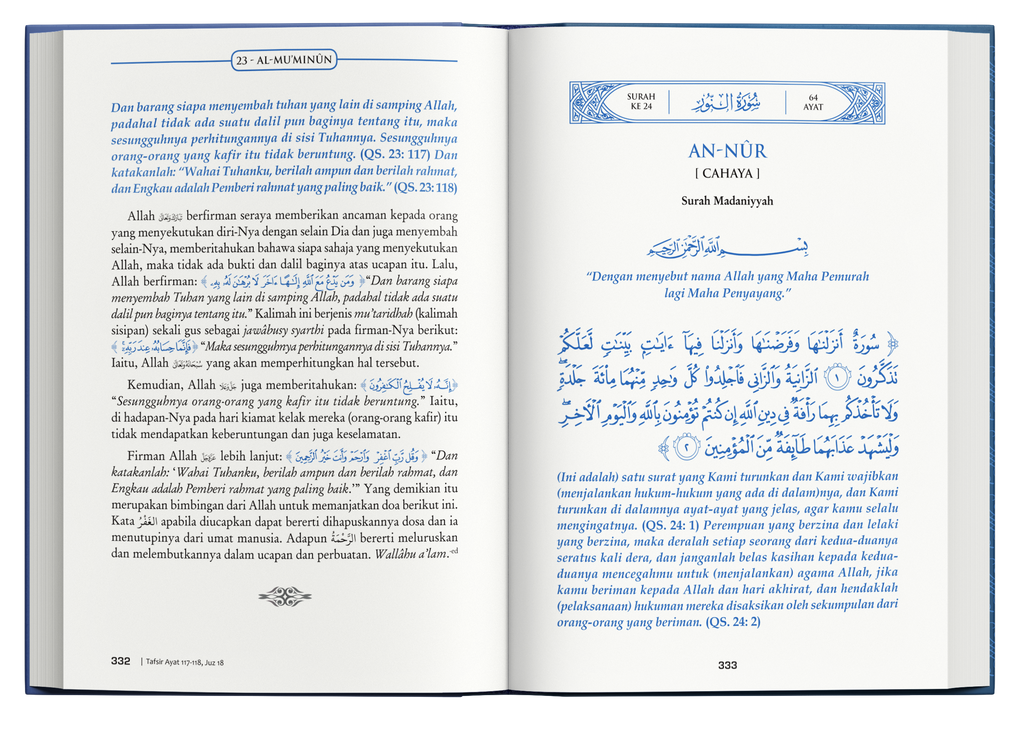 23 - AL-MU'MINÛN
Dan barang siapa menyembah tuhan yang lain di samping Allah,
padahal tidak ada suatu dalil pun baginya tentang itu, maka
sesungguhnya perhitungannya di sisi Tuhannya. Sesungguhnya
orang-orang yang kafir itu tidak beruntung. (QS. 23: 117) Dan
katakanlah: “Wahai Tuhanku, berilah ampun dan berilah rahmat,
dan Engkau adalah Pemberi rahmat yang paling baik.” (QS. 23: 118)
Allah berfirman seraya memberikan ancaman kepada orang
yang menyekutukan diri-Nya dengan selain Dia dan juga menyembah
selain-Nya, memberitahukan bahawa siapa sahaja yang menyekutukan
Allah, maka tidak ada bukti dan dalil baginya atas ucapan itu. Lalu,
Allah berfirman: ﴿ وَمَن يَدْعُ مَعَ اللَّهِ إِلَٰهًا ءَاخَرَ لَا بُرْهَٰنَ لَهُ بِهِ ﴾ “Dan barang siapa
menyembah Tuhan yang lain di samping Allah, padahal tidak ada suatu
dalil pun baginya tentang itu.” Kalimah ini berjenis mu'taridhah (kalimah
sisipan) sekali gus sebagai jawâbusy syarthi pada firman-Nya berikut:
﴿ فَإِنَّمَا حِسَابُهُ عِندَ رَبِّهِ ﴾ “Maka sesungguhnya perhitungannya di sisi Tuhannya.”
Iaitu, Allah yang akan memperhitungkan hal tersebut.
Kemudian, Allah juga memberitahukan: ﴿ إِنَّهُ لَا يُفْلِحُ الْكَٰفِرُونَ ﴾
“Sesungguhnya orang-orang yang kafir itu tidak beruntung.” Iaitu,
di hadapan-Nya pada hari kiamat kelak mereka (orang-orang kafir) itu
tidak mendapatkan keberuntungan dan juga keselamatan.
Firman Allah lebih lanjut: ﴿ وَقُل رَّبِّ اغْفِرْ وَارْحَمْ وَأَنتَ خَيْرُ الرَّٰحِمِينَ ﴾ “Dan
katakanlah: ‘Wahai Tuhanku, berilah ampun dan berilah rahmat, dan
Engkau adalah Pemberi rahmat yang paling baik.’” Yang demikian itu
merupakan bimbingan dari Allah untuk memanjatkan doa berikut ini.
Kata الغَفْرُ apabila diucapkan dapat bererti dihapuskannya dosa dan ia
menutupinya dari umat manusia. Adapun الرَّحْمَةُ bererti meluruskan
dan melembutkannya dalam ucapan dan perbuatan. Wallâhu a'lam.-ed
332 | Tafsir Ayat 117-118, Juz 18
SURAH KE 24 سُورَةُ النُّورِ 64 AYAT
AN-NÛR
[ CAHAYA ]
Surah Madaniyyah
بِسْمِ اللَّهِ الرَّحْمَٰنِ الرَّحِيمِ
“Dengan menyebut nama Allah yang Maha Pemurah
lagi Maha Penyayang.”
﴿ سُورَةٌ أَنزَلْنَٰهَا وَفَرَضْنَٰهَا وَأَنزَلْنَا فِيهَا ءَايَٰتٍۭ بَيِّنَٰتٍ لَّعَلَّكُمْ
تَذَكَّرُونَ ١ الزَّانِيَةُ وَالزَّانِى فَاجْلِدُوا كُلَّ وَٰحِدٍ مِّنْهُمَا مِائَةَ جَلْدَةٍ ۖ
وَلَا تَأْخُذْكُم بِهِمَا رَأْفَةٌ فِى دِينِ اللَّهِ إِن كُنتُمْ تُؤْمِنُونَ بِاللَّهِ وَالْيَوْمِ الْآخِرِ ۖ
وَلْيَشْهَدْ عَذَابَهُمَا طَآئِفَةٌ مِّنَ الْمُؤْمِنِينَ ٢ ﴾
(Ini adalah) satu surat yang Kami turunkan dan Kami wajibkan
(menjalankan hukum-hukum yang ada di dalam)nya, dan Kami
turunkan di dalamnya ayat-ayat yang jelas, agar kamu selalu
mengingatnya. (QS. 24: 1) Perempuan yang berzina dan lelaki
yang berzina, maka deralah setiap seorang dari kedua-duanya
seratus kali dera, dan janganlah belas kasihan kepada kedua-
duanya mencegahmu untuk (menjalankan) agama Allah, jika
kamu beriman kepada Allah dan hari akhirat, dan hendaklah
(pelaksanaan) hukuman mereka disaksikan oleh sekumpulan dari
orang-orang yang beriman. (QS. 24: 2)
333